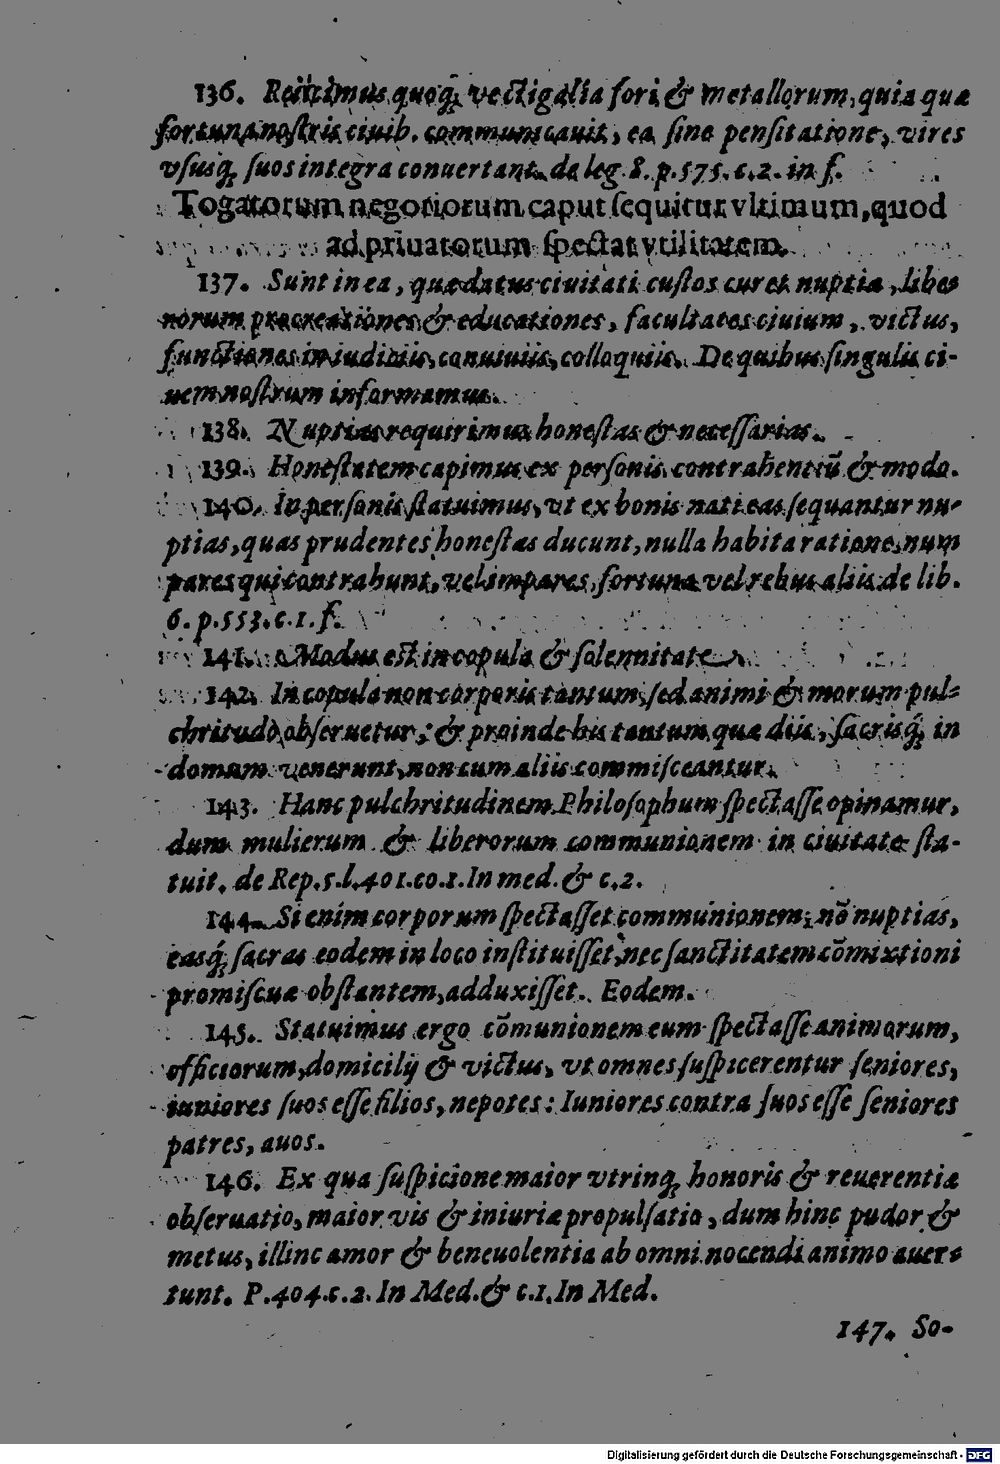 136. Reijcimus quoq; vectigalia fori & metallorum, quia quæ
fortuna nostris ciuib. communicauit, ea sine pensitatione, vires
vsusq; suos integra conuertant. de leg. 8. p. 575. c. 2. in f.
Togatorum negotiorum caput sequitur vltimum, quod
ad priuatorum spectat vtilitatem.
137. Sunt in ea, quæ datus ciuitati custos curet nuptiæ, libe-
rorum procreationes & educationes, facultates ciuium, victus,
functiones in iudiciis, conuiuiis, colloquiis. De quibus singulis ci-
uem nostrum informamus.
138. Nuptias requirimus honestas & necessarias.
139. Honestatem capimus ex personis contrahentiũ & modo.
140. In personis statuimus, vt ex bonis nati eas sequantur nu-
ptias, quas prudentes honestas ducunt, nulla habita ratione, num
pares qui contrahunt, vel impares, fortuna vel rebus aliis. de lib.
6. p. 553. c. 1. f.
141. Modus est in copula & solennitate.
142. In copula non corporis tantum, sed animi & morum pul-
chritudo obseruetur; & proinde his tantum quæ diis, sacrisq́; in
domum venerunt, non cum aliis commisceantur.
143. Hanc pulchritudinem Philosophum spectasse opinamur,
dum mulierum & liberorum communionem in ciuitate sta-
tuit. de Rep. 5. l. 401. co. 1. In med. & c. 2.
144. Si enim corporum spectasset communionem, nõ nuptias,
easq́; sacras eodem in loco instituisset, nec sanctitatem cõmixtioni
promiscuæ obstantem, adduxisset. Eodem.
145. Statuimus ergo cõmunionem eum spectasse animorum,
officiorum, domicilij & victus, vt omnes suspicerentur seniores,
iuniores suos esse filios, nepotes: Iuniores contra suos esse seniores
patres, auos.
146. Ex qua suspicione maior vtrinq; honoris & reuerentiæ
obseruatio, maior vis & iniuriæ propulsatio, dum hinc pudor &
metus, illinc amor & beneuolentia ab omni nocendi animo auer-
tunt. P. 404. c. 2. In Med. & c. 1. In Med.
147. So-
Digitalisierung gefördert durch die Deutsche Forschungsgemeinschaft - DFG